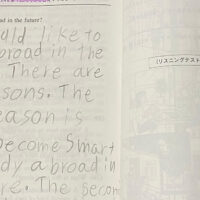 ad in the future?
ald like to
broad in the
. There are
sons. The
eason is
become Smart
dy abroad in
re. The Secon
(リスニングテスト